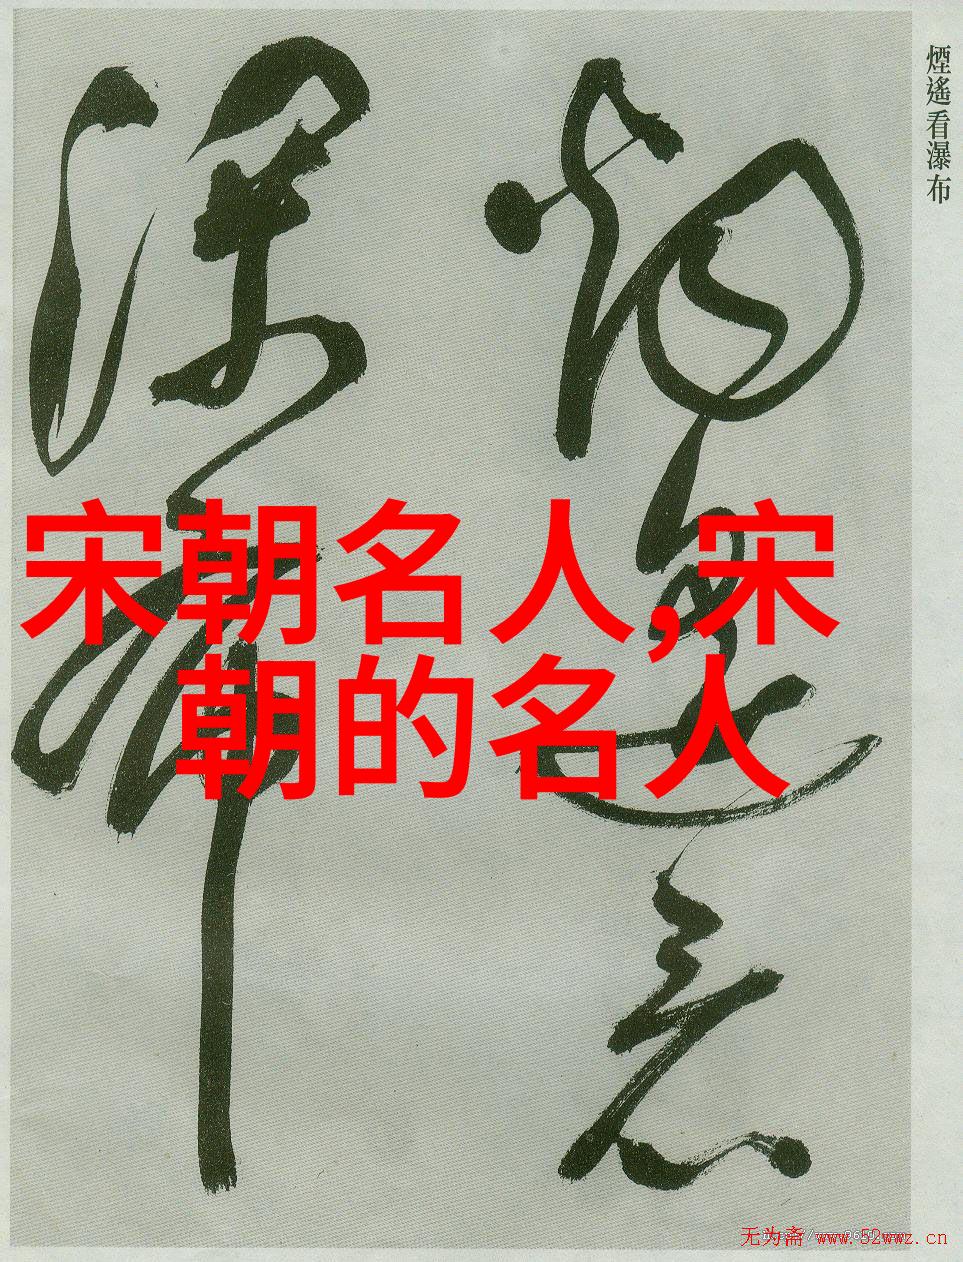 煙遙看瀑布
煙遙看
瀑布
宋朝名人,宋
朝的名人
无为斋 www.52wwz.cn